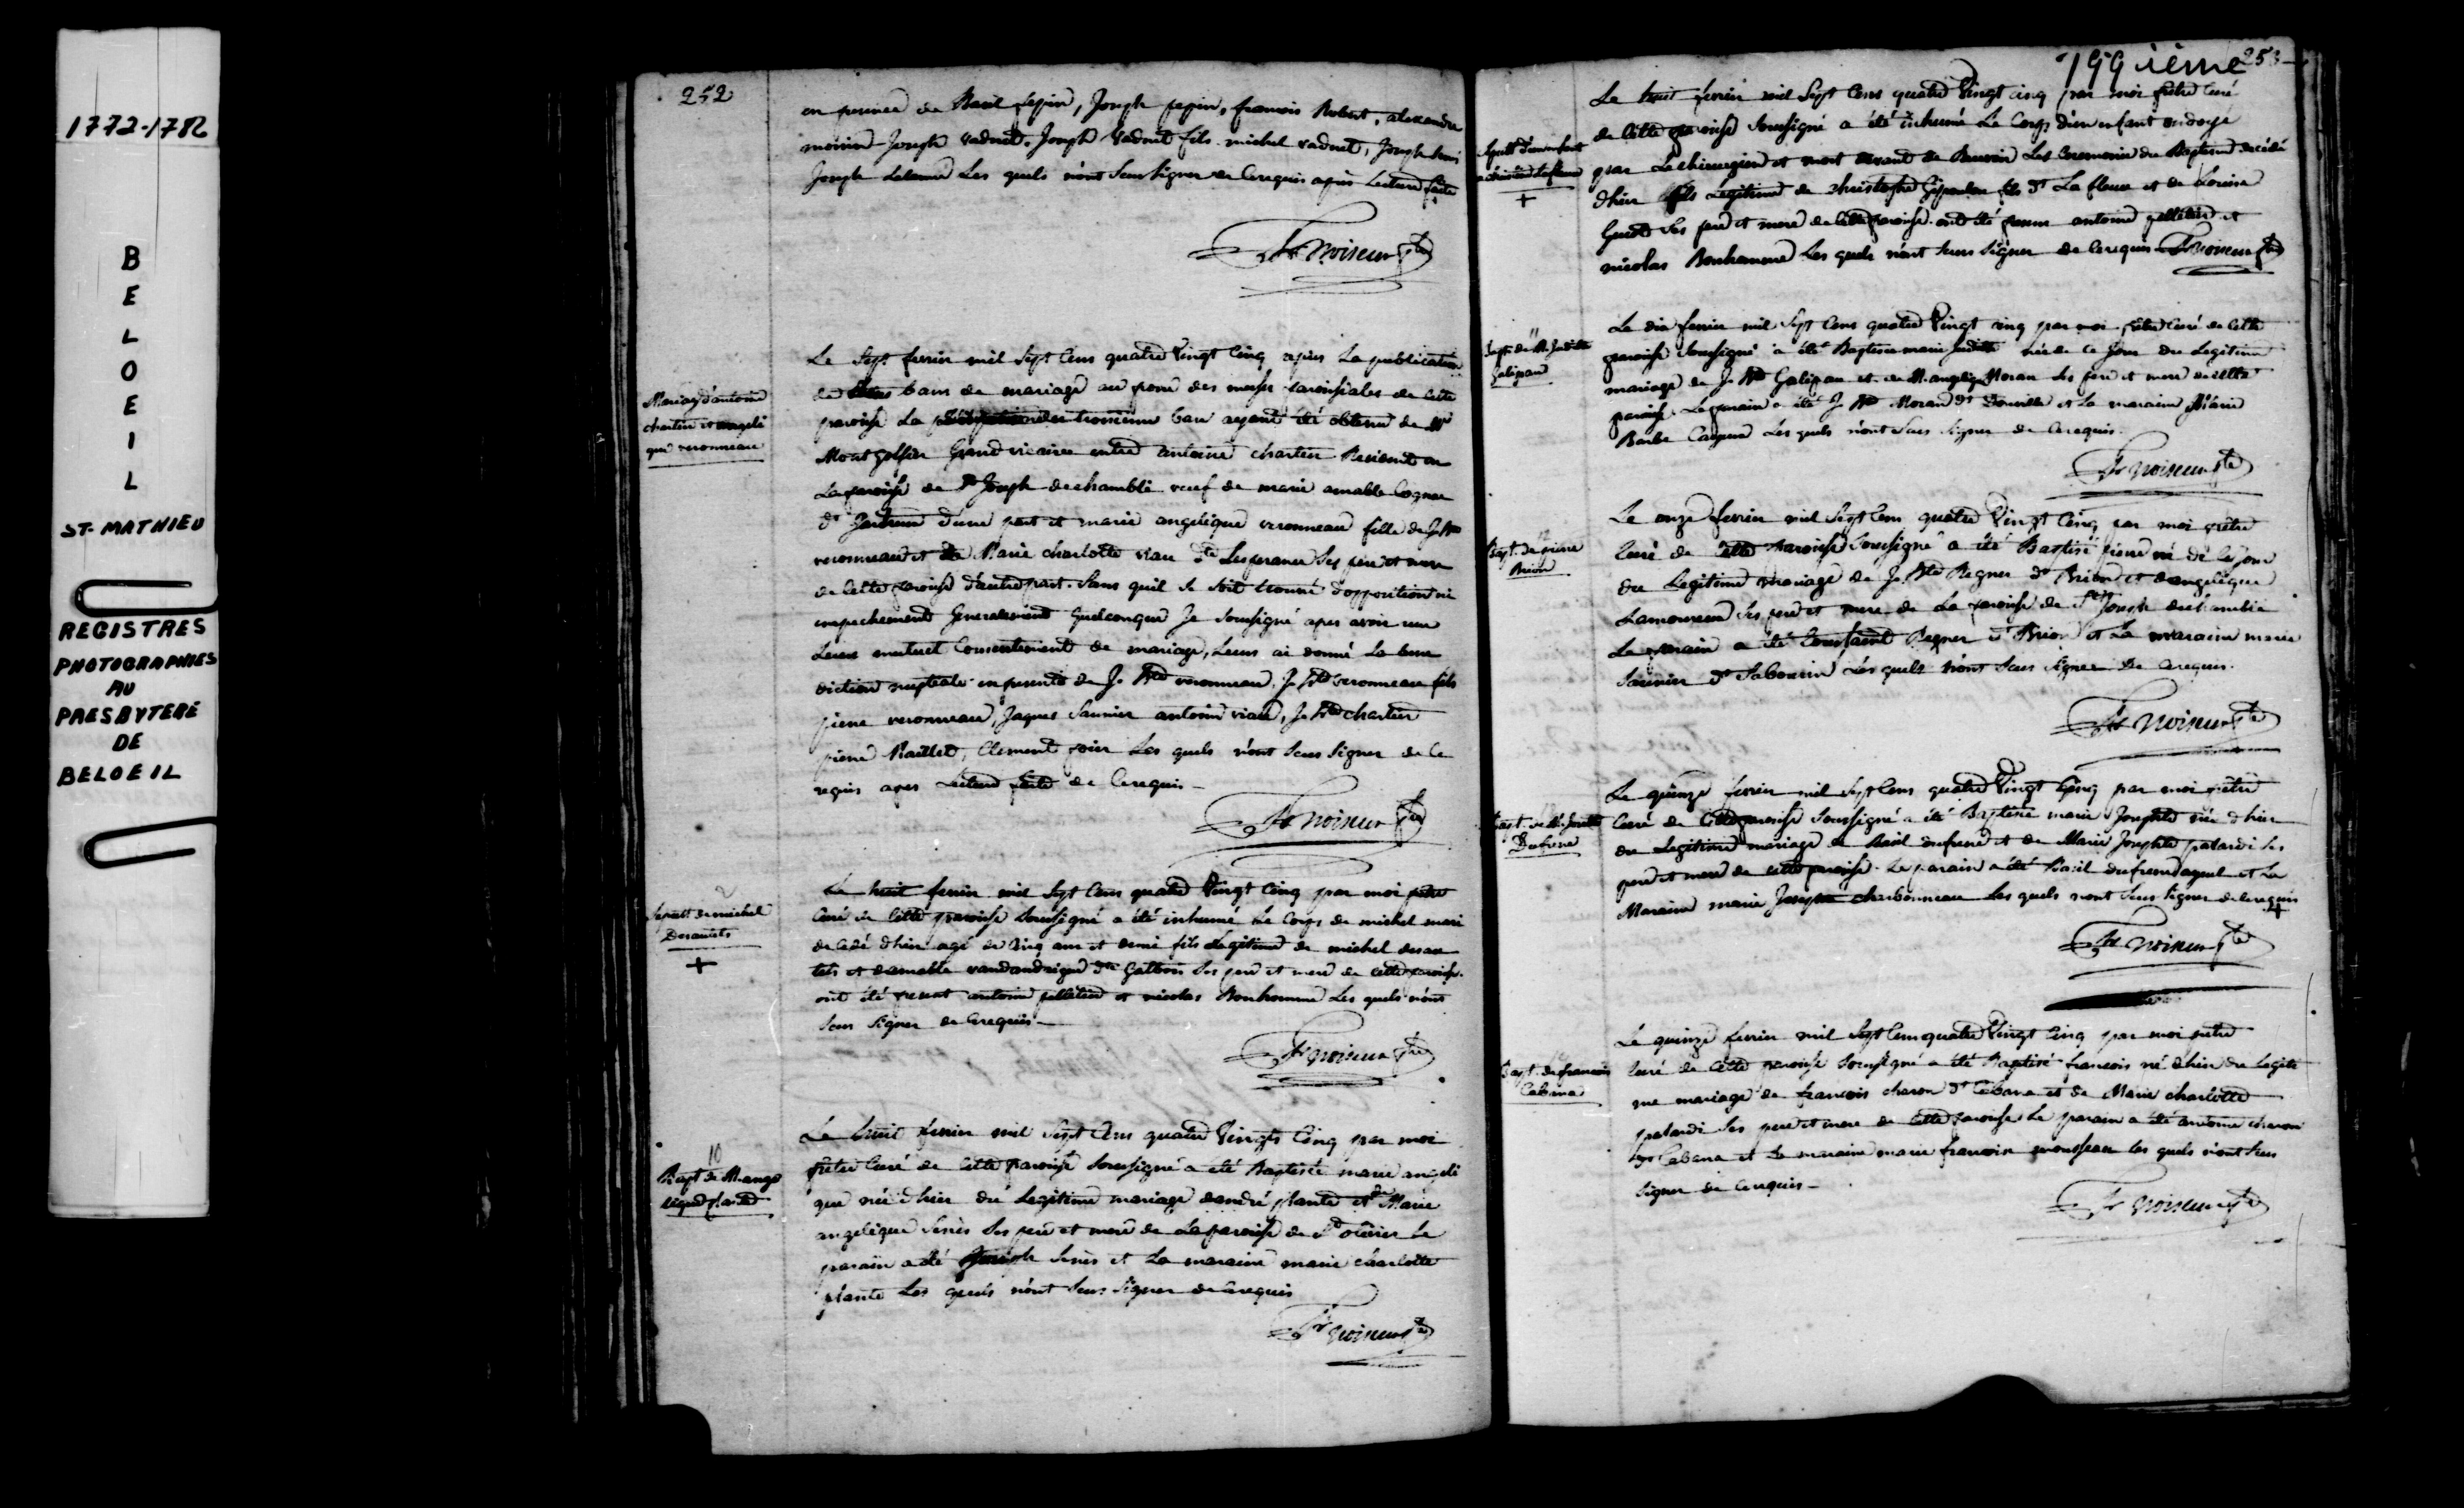 1772-1782
B
E
L
O
E
I
L
ST-MATHIEU
REGISTRES
PHOTOGRAPHIES
AU
PRESBYTERE
DE
BELOEIL
252
en presence de Basil pepin, Joseph pepin, francois Robert, alexandre
Joseph vadnet. Joseph vadnet fils michel vadnet, Joseph
Joseph les quels n'ont seus signer de ce requis après Lecture faite
fr noiseux ptre
Mariage d'antoine
chartier et angeli
que veronneau
Le Sept fevrier mil Sept Cens quatre Vingt Cinq après La publication
de deux bans de mariage au prone des messes paroissiales de cette
paroisse La dispense du troisieme ban ayant été obtenu de Mr
Montgolfier Grand vicaire entre antoine chartier Resident en
La paroisse de St Joseph de chambli veuf de marie amable Cognac
dt d'une part et marie angelique veronneau fille de J. Bte
veronneau et de Marie charlotte viau dte Lesperance Ses pere et mere
de cette paroisse d'autre part. Sans quil se soit trouvé d'opposition ni
empechement Generalement Quelconque Je Soussigné apres avoir reçu
Leur mutuel Consentement de mariage, Leurs ai donné La bene
diction nuptiale en presence de J. Bte veronneau, J. Bte veronneau fils
pierre veronneau, Jaques Saunier antoine viau, J. Bte chartier
pierre Maillet, Clement les quels n'ont seus signer de ce
requis apres Lecture faite de ce requis
fr noiseux ptre
2
Sepult de michel
Desautels
+
Le huit fevrier mil Sept Cens quatre Vingt Cinq par moi pretre
Curé de Cette paroisse Soussigné a été inhumé Le Corps de michel
decedé d'hier agé de Cinq ans et demi fils Legitime de michel desau
tels et d'amable vandandaigue dte Gatbois Ses pere et mere de cette paroisse.
ont été present antoine pelletier et nicolas Bonhomme Les quels n'ont
seus signer de ce requis
fr noiseux ptre
10
Bapt de M. ange
lique plante
Le huit fevrier mil Sept Cens quatre Vingts Cinq par moi
prêtre Curé de Cette paroisse Soussigné a été Baptisée marie angeli
que née d'hier du Legitime mariage d'andré plante et de Marie
angelique Senès Ses pere et mere de La paroisse de St olivier Le
parain a été Joseph Senès et La maraine marie charlotte
plante Les quels n'ont seus signer de ce requis
fr noiseux ptre
199 ième 253
Sepult d'un enfant
+
Le huit fevrier mil Sept Cens quatre Vingt cinq par moi prêtre Curé
de Cette paroisse Soussigné a été inhumé Le Corps d'un enfant ondoyé
par Le chirurgien et mort avant de Recevoir Les Ceremonies du Baptesme decedé
d'hier fils Legitime de christophe dt La fleur et de Louise
Ses pere et mere de cette paroisse. ont été presens antoine pelletier et
nicolas Bonhomme Les quels n'ont seus signer de ce requis fr noiseux ptre
11
Bapt. de M. Judith
Galipau
Le dix fevrier mil Sept Cens quatre Vingt cinq par moi prêtre Curé de Cette
paroisse Soussigné a été Baptisée marie Judith née de Ce Jour du Legitime
mariage de J. Bte Galipau et de M. angeliq Moran Ses pere et mere de cette
paroisse. Le parain a été J. Bte Moran dt Douville et La maraine Marie
Barbe Les quels n'ont seus signer de ce requis.
fr noiseux ptre
12
Bapt. de pierre
Brion
Le onze fevrier mil Sept Cens quatre Vingt Cinq par moi prêtre
Curé de Cette Paroisse Soussigné a été Baptisé pierre né de Ce Jour
du Legitime mariage de J. Bte Regner dt Brion et d'angelique
Lamoureux Ses pere et mere de La paroisse de St Joseph de chambli
Le parain a été Constant Regner dt Brion et La maraine marie
Saunier dt Sabourin Les quels n'ont seus signer de ce requis.
fr noiseux ptre
Bapt. de M. Josette
Dufresne
Le quinze fevrier mil Sept Cens quatre Vingt Cinq par moi prêtre
Curé de Cette paroisse Soussigné a été Baptisée marie Josephte née d'hier
du Legitime mariage de Basil dufresne et de Marie Josephte palardi Ses
pere et mere de cette paroisse. Le parain a été Basil dufresne ayeul et La
Maraine marie Josephte charbonneau Les quels n'ont seus signer de ce requis
+
fr noiseux ptre
Bapt. de francois
Cabana
Le quinze fevrier mil Sept Cens quatre Vingt Cinq par moi pretre
Curé de Cette paroisse Soussigné a été Baptisé francois né d'hier du Legiti
me mariage de francois charon dt Cabana et de Marie charlotte
palardi Ses pere et mere de Cette paroisse Le parain a été antoine charon
dt Cabana et La maraine marie francoise mousseau les quels n'ont seus
signer de ce requis
fr noiseux ptre